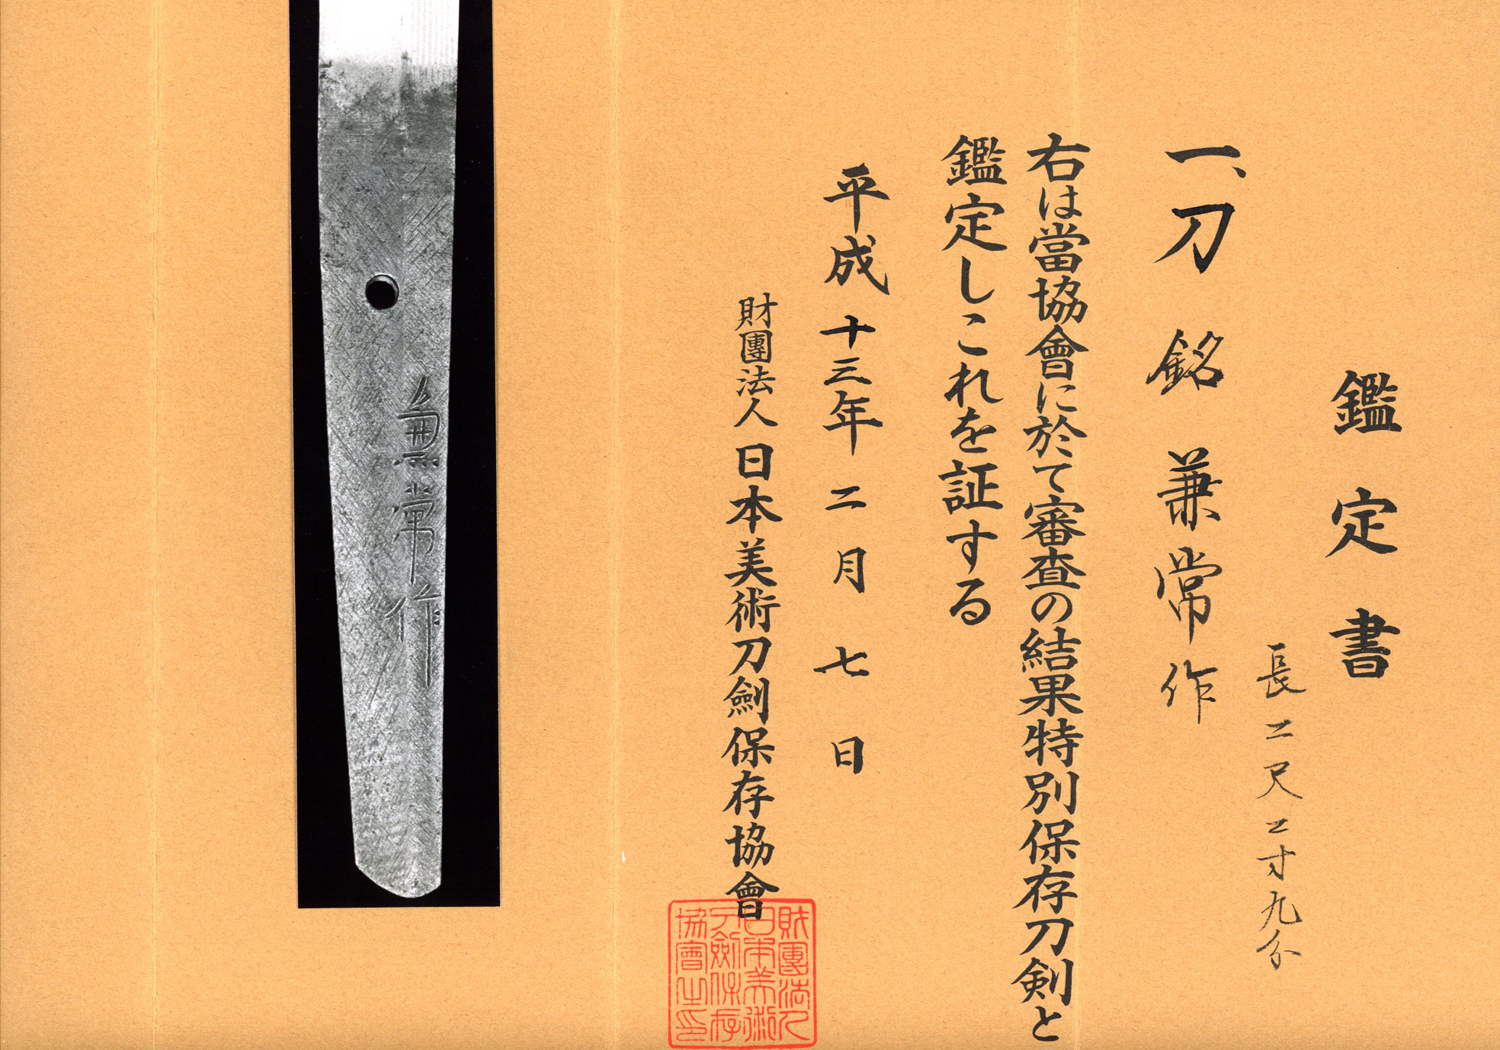 鑑定書
一、刀 銘 兼常作
長二尺二寸九分
右は當協會に於て審査の結果特別保存刀剣と
鑑定しこれを証する
平成十三年二月七日
財團法人日本美術刀劍保存協會
財團法人
日本美術
刀劍保存
協會之印
兼常作